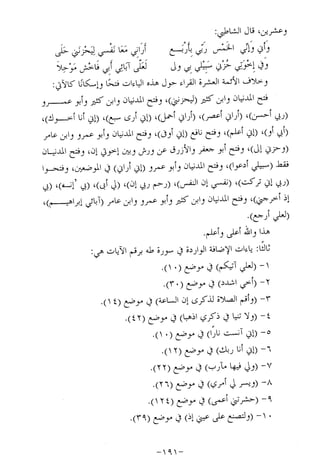 وعشرين، قال الشاطبي:
وأني وإني الخمس ربي بأربع أراني معا نفسي ليحزنني حلى
وفي إخوتي حزني سبيلي بي ولي لعلي آبائي أبي فاخش موحلا
وخلاف الأئمة العشرة القراء حول هذه الياءات فتحا وإسكانا كالآتي:
فتح المدنيان وابن كثير (ليحزنني)، وفتح المدنيان وابن كثير وأبو عمــرو
(ربي أحسن)، (أراني أعصر)، (أراني أحمل)، (إني أرى سبع)، (إني أنا أخــوك)،
(أبي أو)، (إني أعلم)، وفتح نافع (إني أوفي)، وفتح المدنيان وأبو عمرو وابن عامر
(وحزني إلى)، وفتح أبو جعفر والأزرق عن ورش وبين إخوتي إن، وفتح المدنيــان
فقط (سبيلي أدعوا)، وفتح المدنيان وأبو عمرو (إني أراني) في الموضعين، وفتحــوا
(ربي إني تركت)، (نفسي إن النفس)، (رحم ربي إن)، (لي أبي)، (ربي إنه)، (بي
إذ أخرجني)، وفتح المدنيان وابن كثير وأبو عمرو وابن عامر (آبائي إبراهيــم)،
(لعلي أرجع).
هذا والله أعلى وأعلم.
ثالثًا: ياءات الإضافة الواردة في سورة طه برقم الآيات هي:
١- (لعلي آتيكم) في موضع (١٠).
٢- (أخي اشدد) في موضع (٣٠).
٣- (وأقم الصلاة لذكري إن الساعة) في موضع (١٤).
٤- (ولا تنيا في ذكري اذهبا) في موضع (٤٢).
٥- (إني آنست نارًا) في موضع (١٠).
٦- (إني أنا ربك) في موضع (١٢).
٧- (ولي فيها مآرب) في موضع (٢٢).
٨- (ويسر لي أمري) في موضع (٢٦).
٩- (حشرتني أعمى) في موضع (١٢٤).
١٠- (ولتصنع على عيني إذ) في موضع (٣٩).
-١٩١-